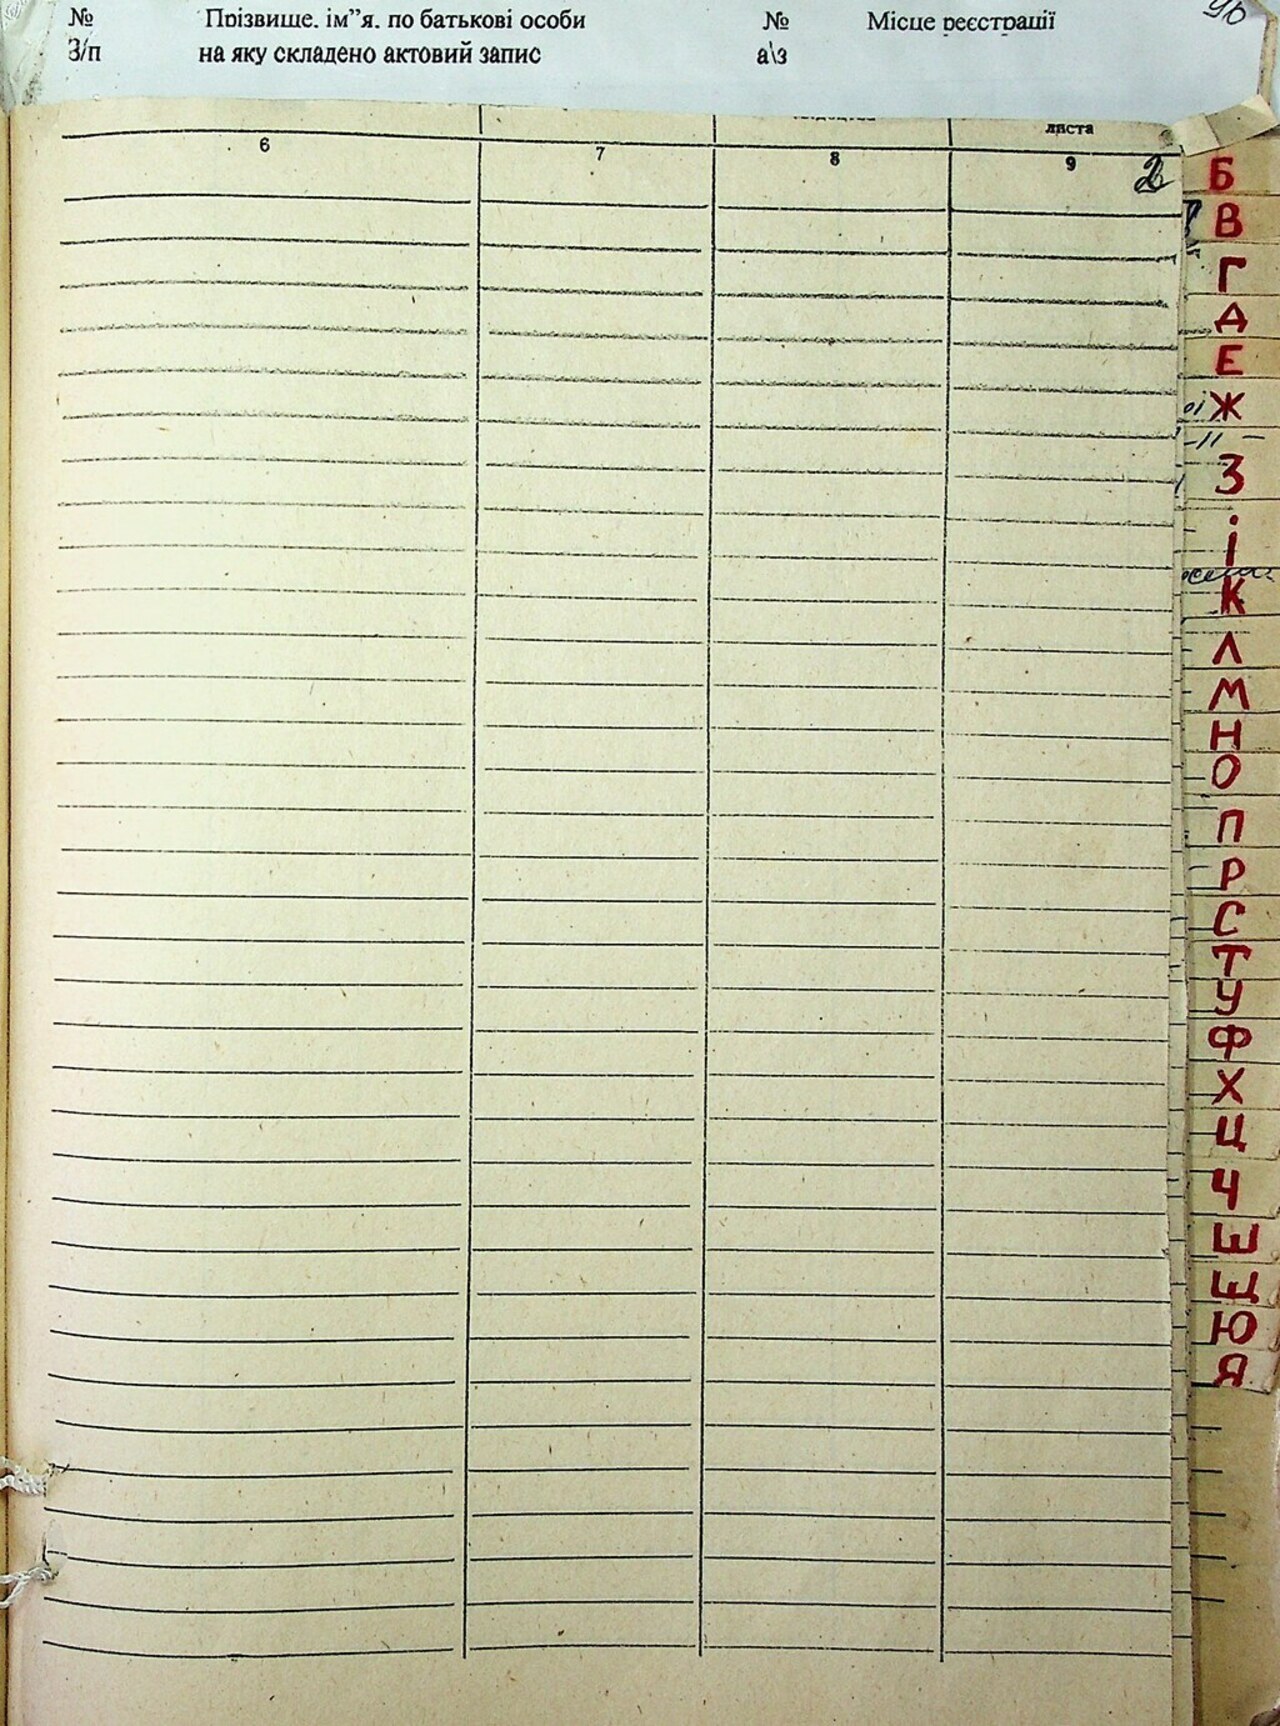 № Прізвище, ім”я, по батькові особи № Місце реєстрації
З/п на яку складено актовий запис а\з
листа
6 7 8 9 2
Б
В
Г
Д
Е
Ж
З
і
К
Л
М
Н
О
П
Р
С
Т
У
Ф
Х
Ц
Ч
Ш
Щ
Ю
Я